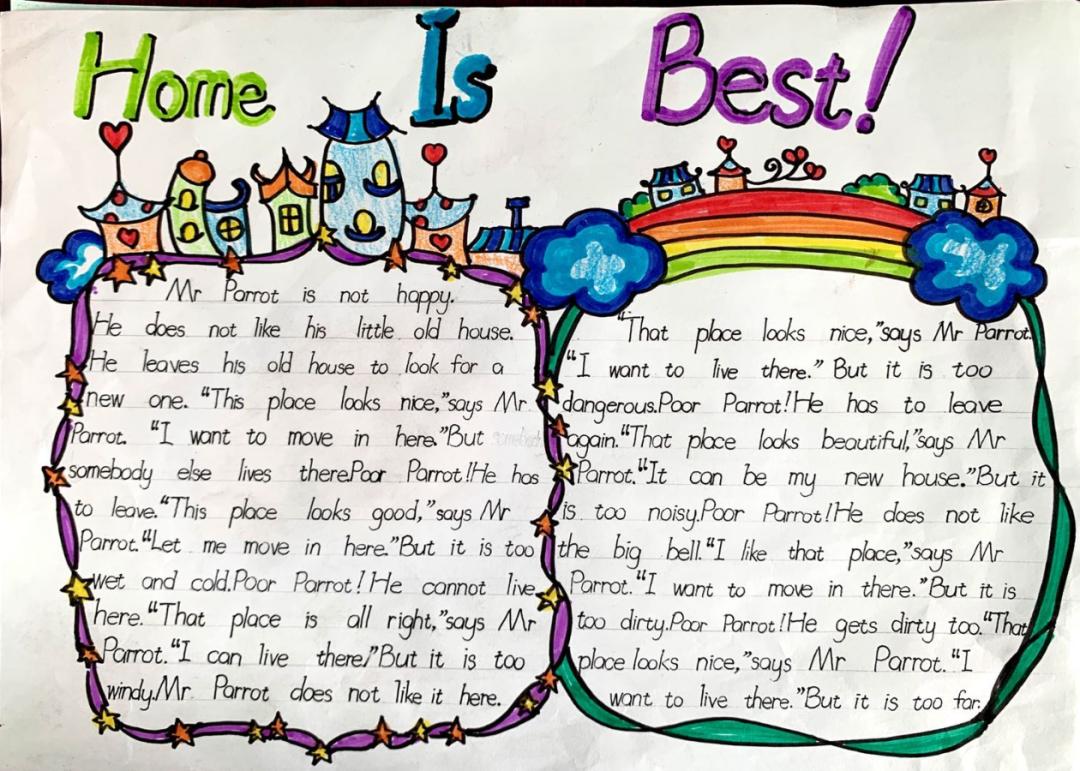 Home Is Best!
Mr Parrot is not happy.
He does not like his little old house.
He leaves his old house to look for a
new one. “This place looks nice,”says Mr
Parrot. “I want to move in here.”But somebody
somebody else lives there.Poor Parrot!He has
to leave.“This place looks good,”says Mr
Parrot.“Let me move in here.”But it is too
wet and cold.Poor Parrot! He cannot live
here.“That place is all right,”says Mr
Parrot.“I can live there.”But it is too
windy.Mr Parrot does not like it here.
“That place looks nice,”says Mr Parrot.
“I want to live there.” But it is too
dangerous.Poor Parrot!He has to leave
again.“That place looks beautiful,”says Mr
Parrot.“It can be my new house.”But it
is too noisy.Poor Parrot!He does not like
the big bell.“I like that place,”says Mr
Parrot.“I want to move in there.”But it is
too dirty.Poor Parrot!He gets dirty too.“That
place looks nice,”says Mr Parrot.“I
want to live there.”But it is too far.